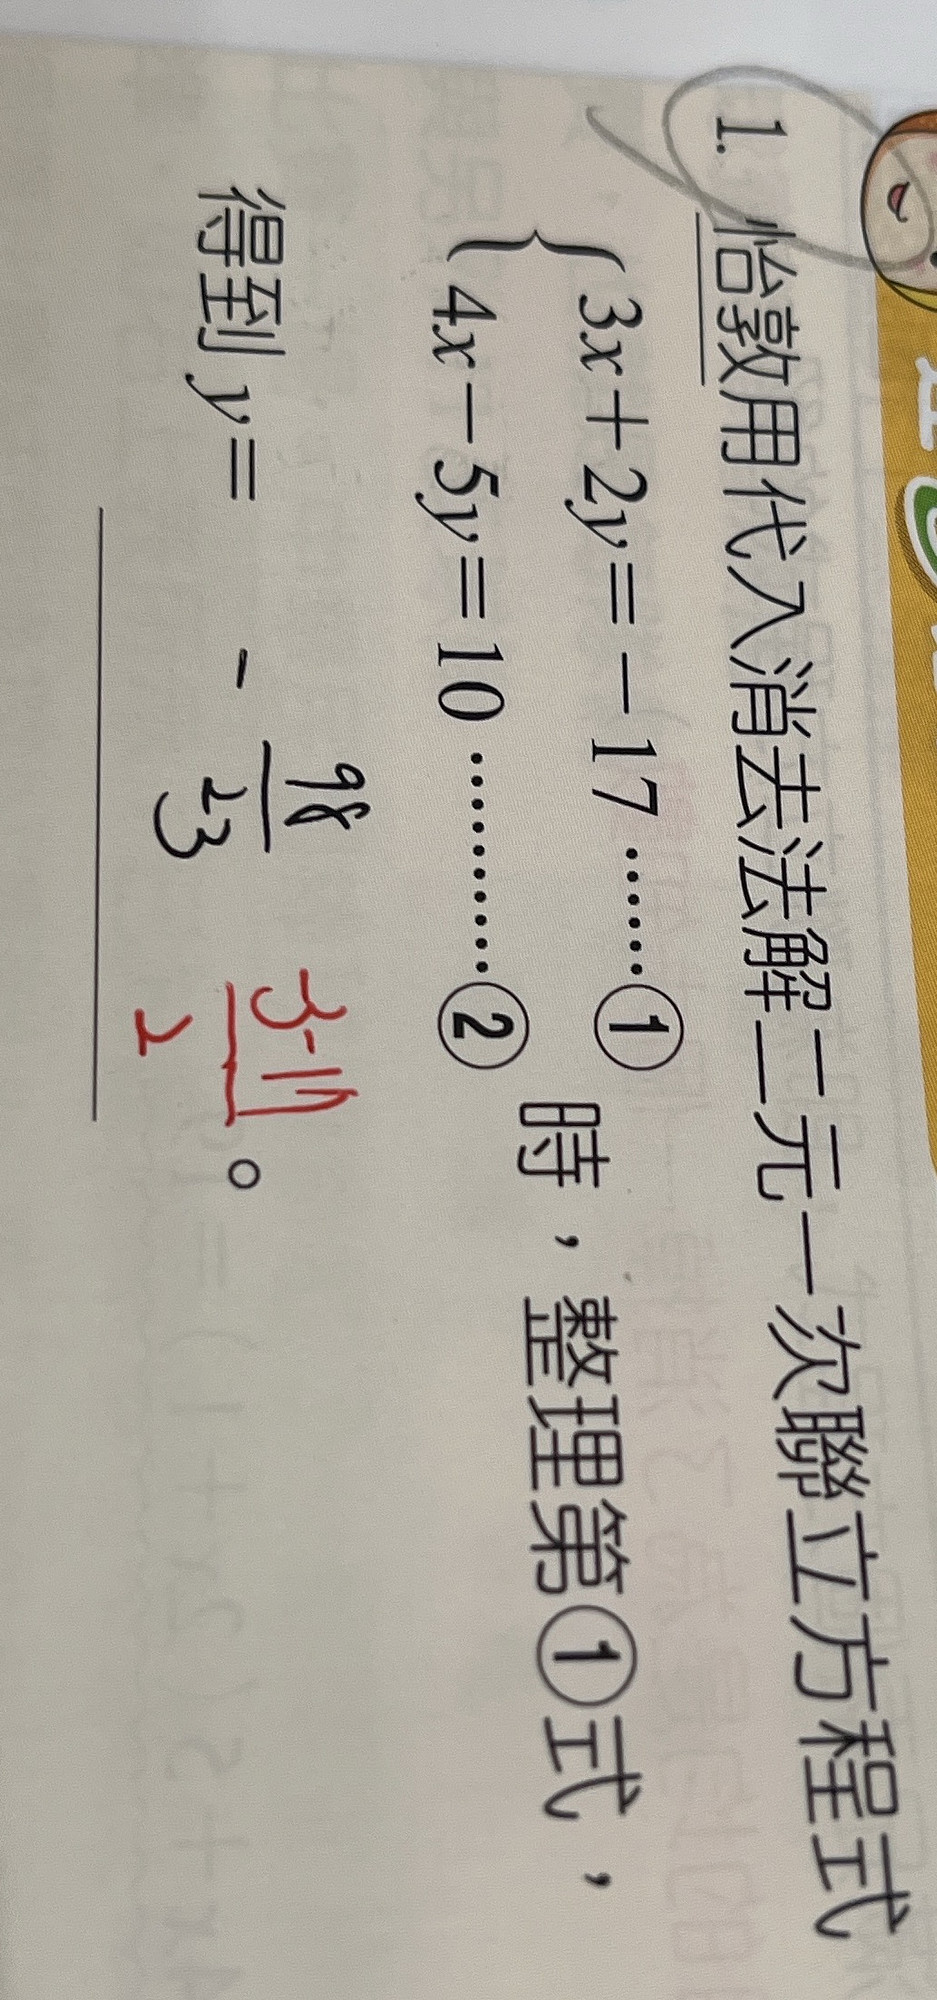 1. 怡敦用代入消去法解二元一次聯立方程式
{3x+2y=-17 ……①
{4x-5y=10 …………② 時，整理第①式，
得到 y= -98/23 。